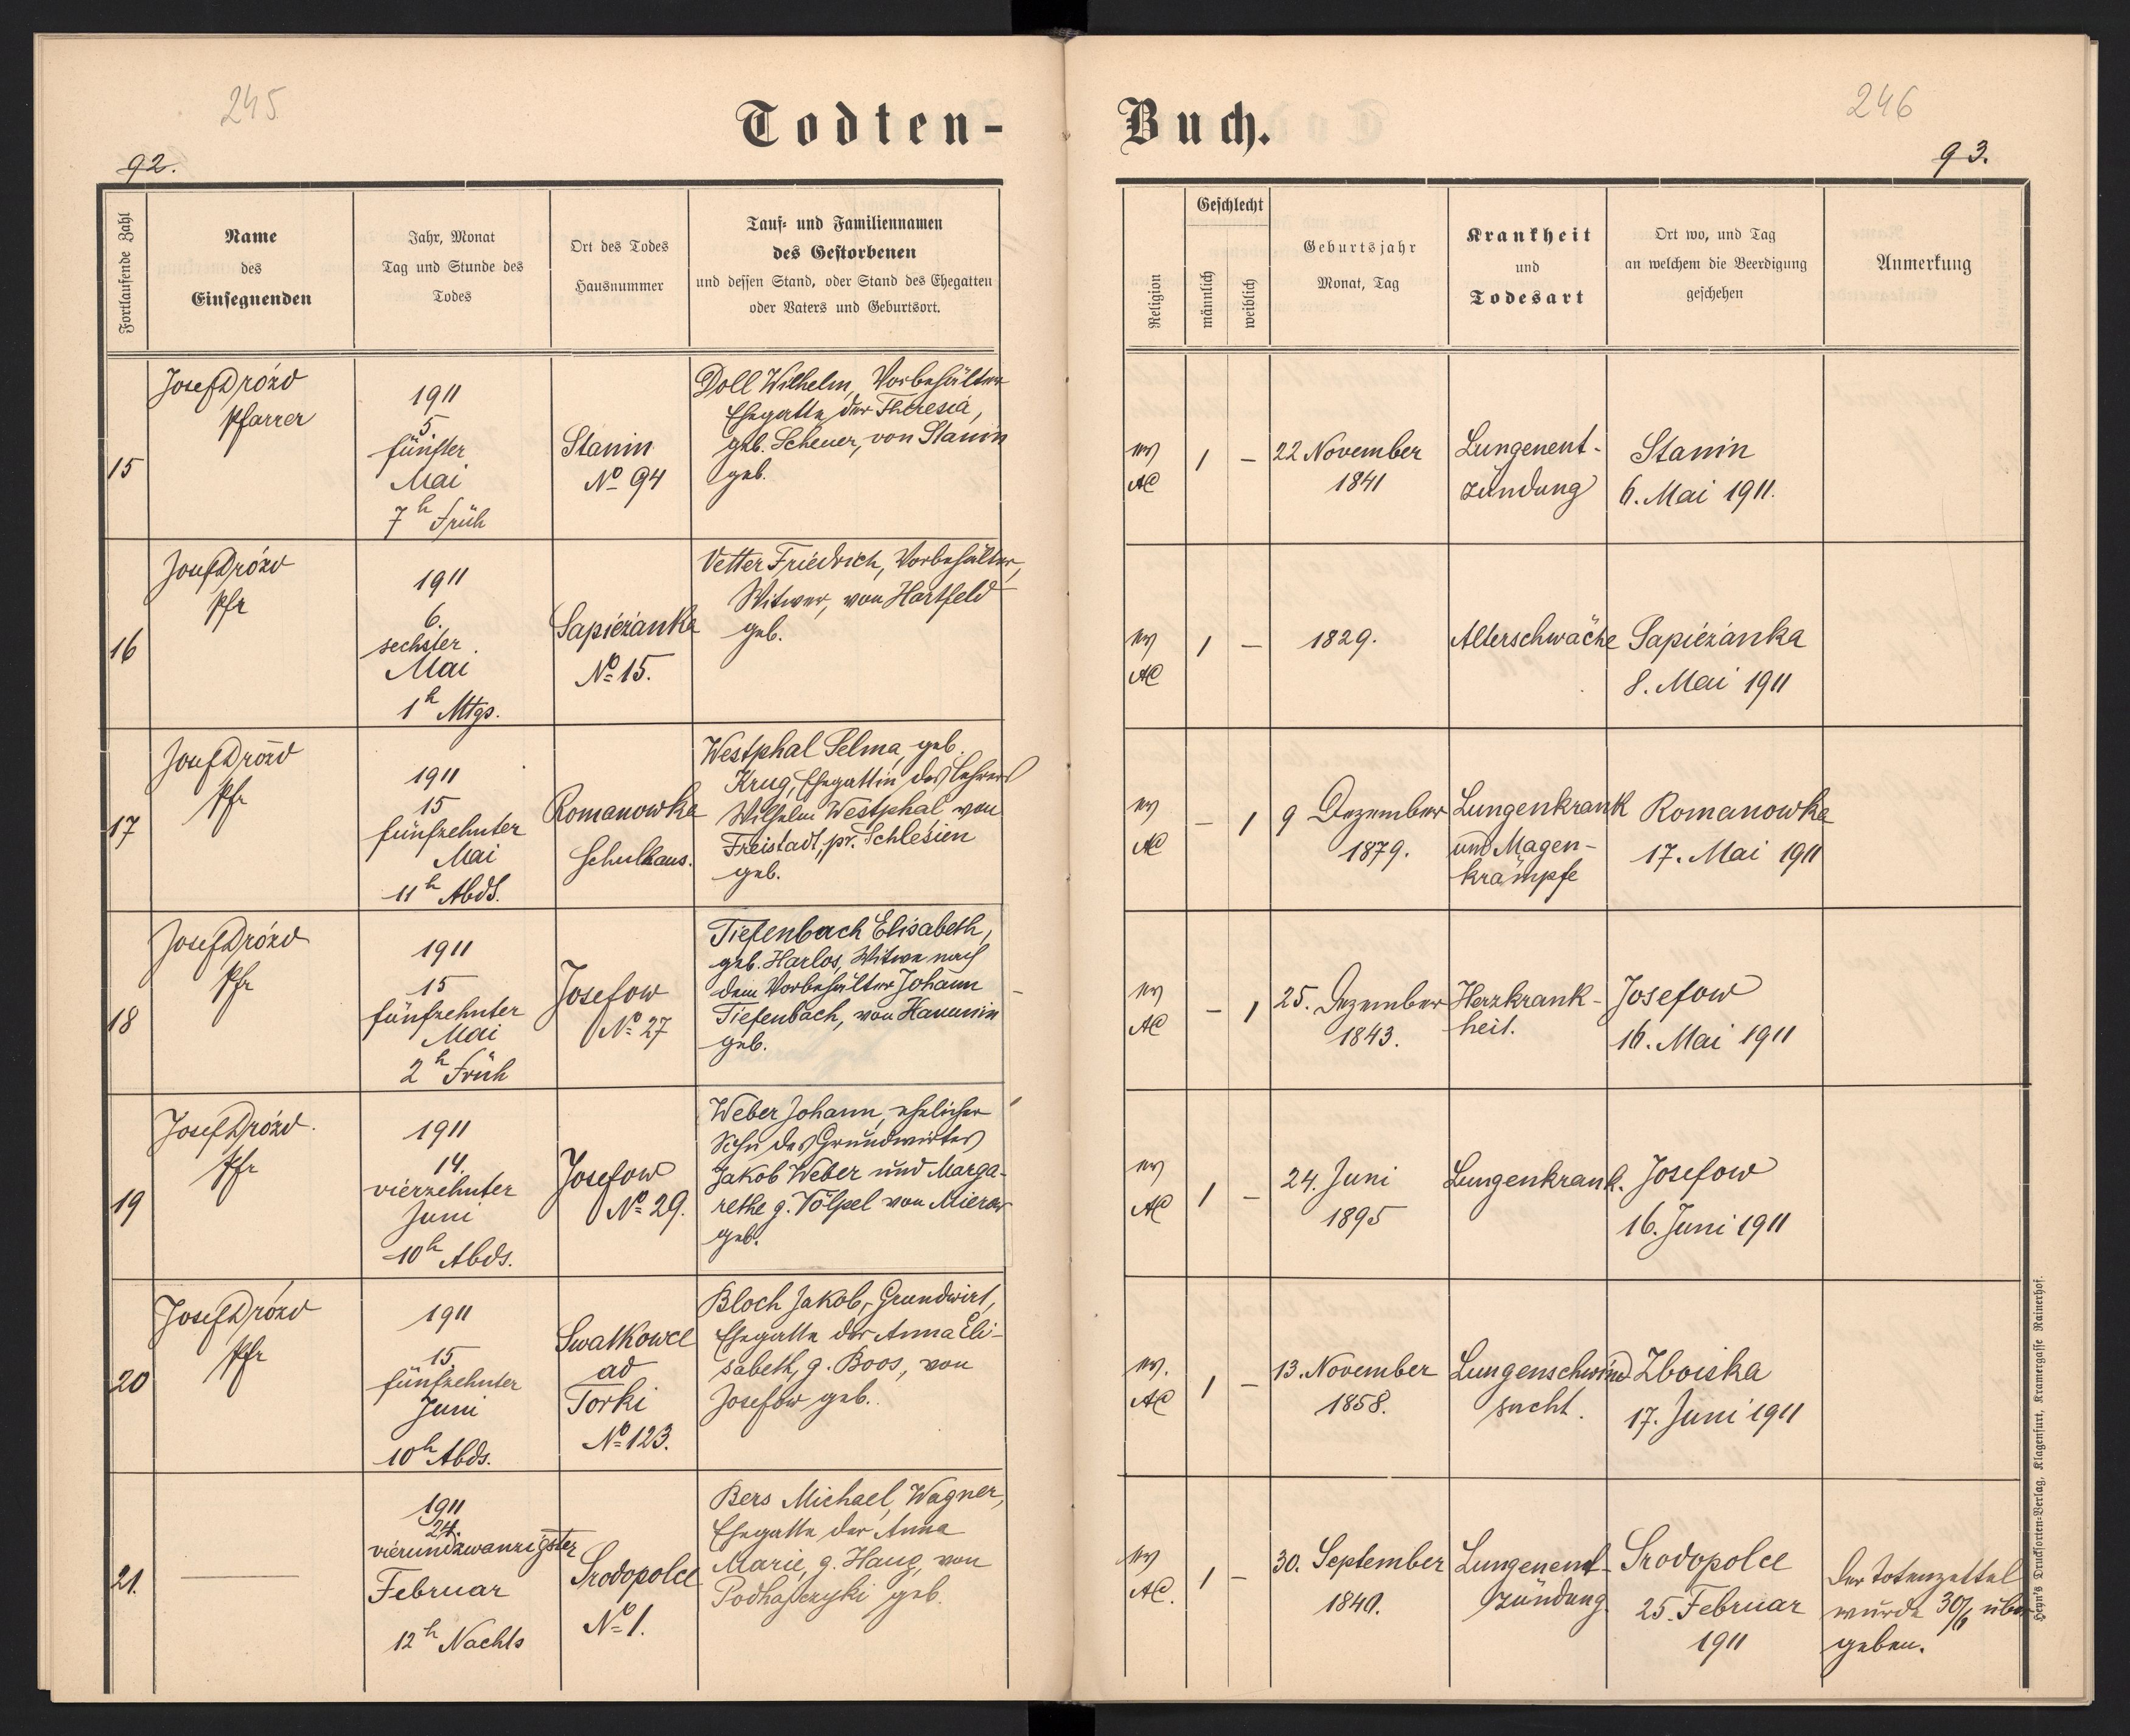 245
246
Todten-
Buch.
92.
93.
Fortlaufende Zahl
Name
des
Einsegnenden
Jahr, Monat
Tag und Stunde des
Todes
Ort des Todes
Hausnummer
Tauf- und Familiennamen
des Gestorbenen
und dessen Stand, oder Stand des Ehegatten
oder Vaters und Geburtsort.
Religion
Geschlecht
männlich
weiblich
Geburtsjahr
Monat, Tag
Krankheit
und
Todesart
Ort wo, und Tag
an welchem die Beerdigung
geschehen
Anmerkung
15
Josef Drózd
Pfarrer
1911
5.
fünfter
Mai
7h Früh
Stanin
No 94
Doll Wilhelm, Vorbehälter
Ehegatte der Theresia,
geb. Scheuer, von Stanin
geb.
ev
AC
1
–
22 November
1841
Lungenent-
zündung
Stanin
6. Mai 1911.
16
Josef Drózd
Pfr
1911
6.
sechster
Mai
1h Mtgs.
Sapieżanka
No 15.
Vetter Friedrich, Vorbehälter,
Witwer, von Hartfeld
geb.
ev
AC
1
–
1829.
Alterschwäche
Sapieżanka
8. Mai 1911
17
Josef Drózd
Pfr
1911
15
fünfzehnter
Mai
11h Abds.
Romanowka
Schulhaus.
Westphal Selma, geb.
Krug, Ehegattin des Lehrers
Wilhelm Westphal von
Freistadt, pr. Schlesien
geb.
ev
AC
–
1
9 Dezember
1879.
Lungenkrank
und Magen-
krämpfe
Romanowka
17. Mai 1911
18
Josef Drózd
Pfr
1911
15
fünfzehnter
Mai
2h Früh
Josefow
No 27
Tiefenbach Elisabeth,
geb. Harlos, Witwe nach
dem Vorbehälter Johann
Tiefenbach, von Hanunin
geb.
ev
AC
–
1
25. Dezember
1843.
Herzkrank-
heit.
Josefow
16. Mai 1911
19
Josef Drózd.
Pfr
1911
14.
vierzehnter
Juni
10h Abds.
Josefow
No 29.
Weber Johann, ehelicher
Sohn des Grundwirtes
Jakob Weber und Marga-
rethe g. Völpel von Mierow
geb.
ev
AC
1
–
24. Juni
1895
Lungenkrank.
Josefow
16. Juni 1911
20
Josef Drózd
Pfr
1911
15.
fünfzehnter
Juni
10h Abds.
Swatkowce
ad
Torki
No 123.
Bloch Jakob, Grundwirt,
Ehegatte der Anna Eli-
sabeth, g. Boos, von
Josefow geb.
ev.
AC
1
–
13. November
1858.
Lungenschwind
sucht.
Zboiska
17. Juni 1911
21.
1911
24.
vierundzwanzigster
Februar
12h Nachts
Srodopolce
No 1.
Bers Michael, Wagner,
Ehegatte der Anna
Marie, g. Haug, von
Podhajczyki geb.
ev
AC.
1
–
30. September
1840.
Lungenent-
zündung
Srodopolce
25. Februar
1911
Der Totenzettel
wurde 30/6 über
geben.
Heyn's Drucksorten-Verlag, Klagenfurt, Kramergasse Rainerhof.